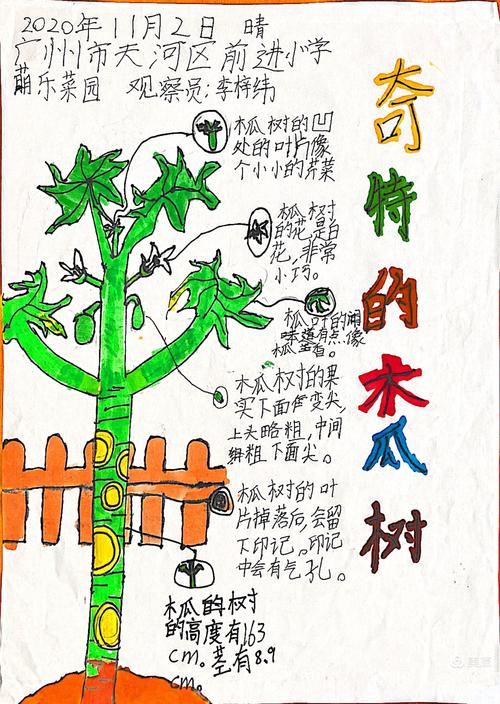 2020年11月2日 晴
广州市天河区前进小学
萌乐菜园 观察员:李梓纬
奇特的木瓜树
木瓜树的凹
处的叶片像
个小小的芹菜
木瓜树
的花是白
花,非常
小巧。
木瓜叶的闻
味道有点像
木瓜
香。
木瓜树的果
实下面会变尖,
上头略粗,中间
粗下面尖。
木瓜树的叶
片掉落后,会留
下印记。印记
中会有气孔。
木瓜的树
的高度有163
cm。茎有8.9
cm。